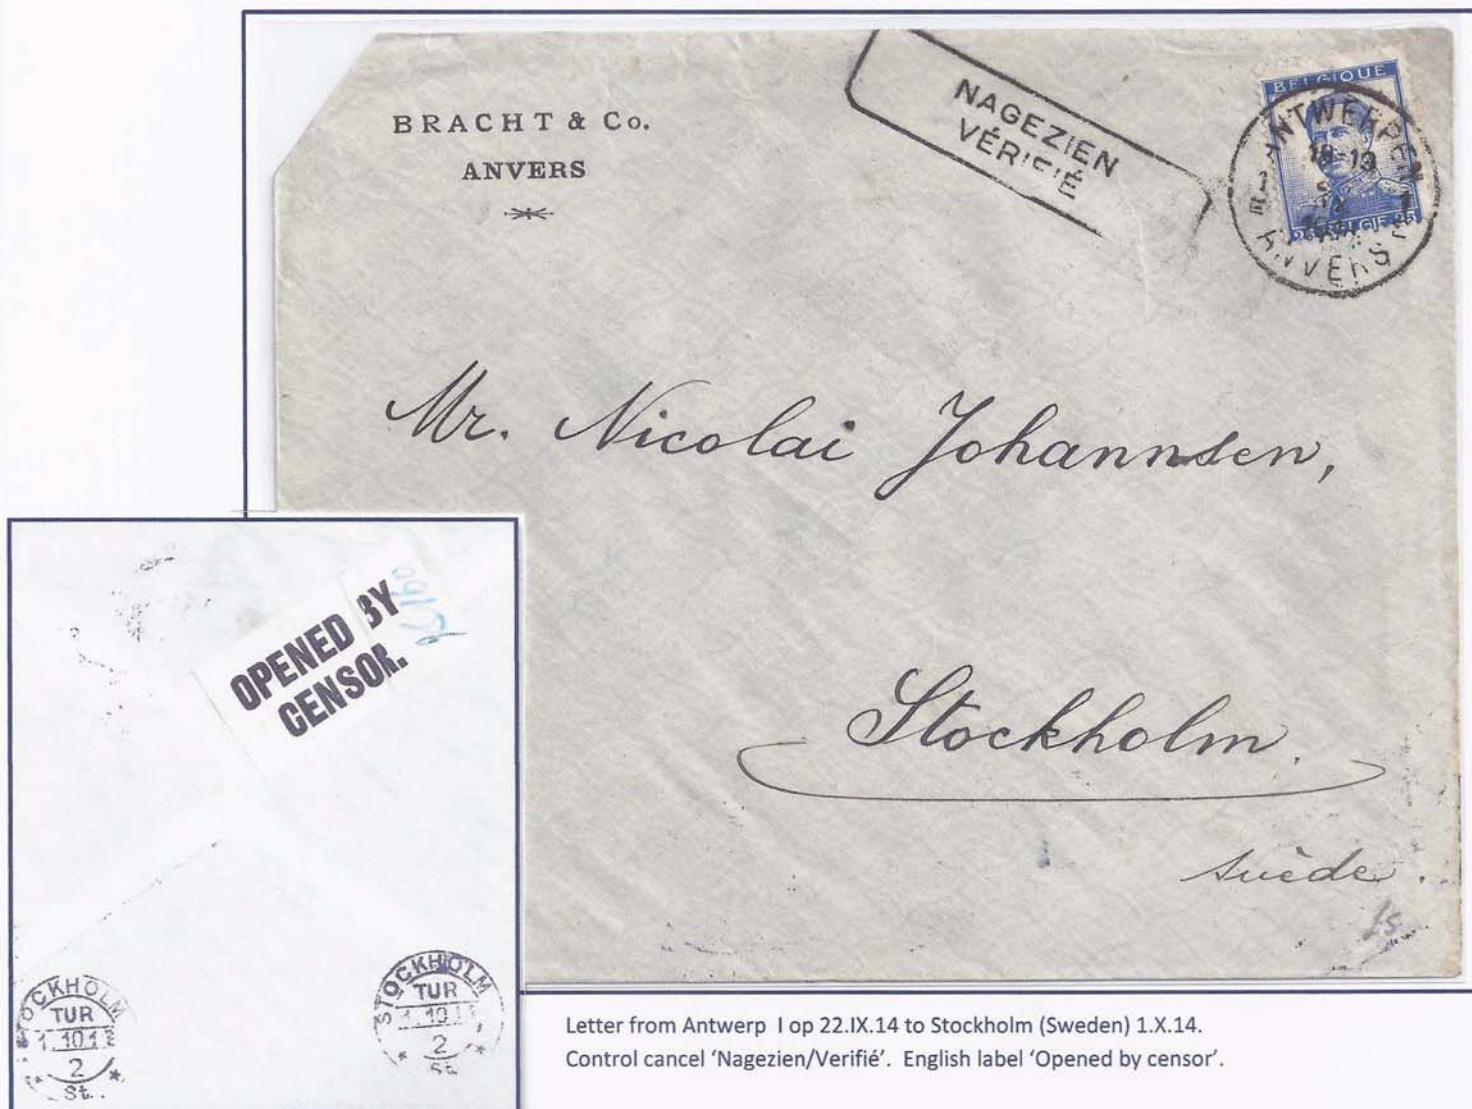 BRACHT & Co.
ANVERS
NAGEZIEN
VÉRIFIÉ
BELGIQUE
ANTWERPEN
ANVERS
Mr. Nicolai Johannsen,
Stockholm.
Suède.
OPENED BY
CENSOR.
STOCKHOLM
TUR
2
St.
STOCKHOLM
TUR
2
Letter from Antwerp I op 22.IX.14 to Stockholm (Sweden) 1.X.14.
Control cancel ‘Nagezien/Verifié’. English label ‘Opened by censor’.